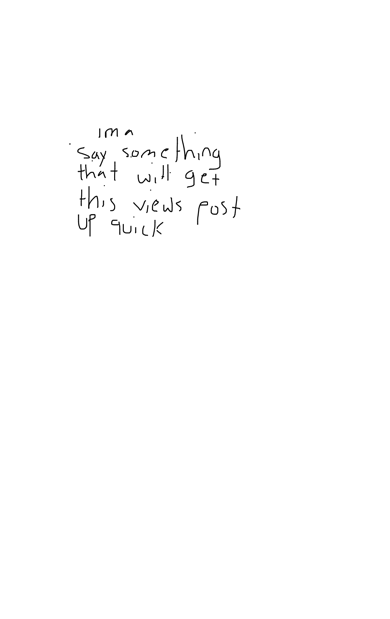 ima
say something
that will get
this views post
up quick